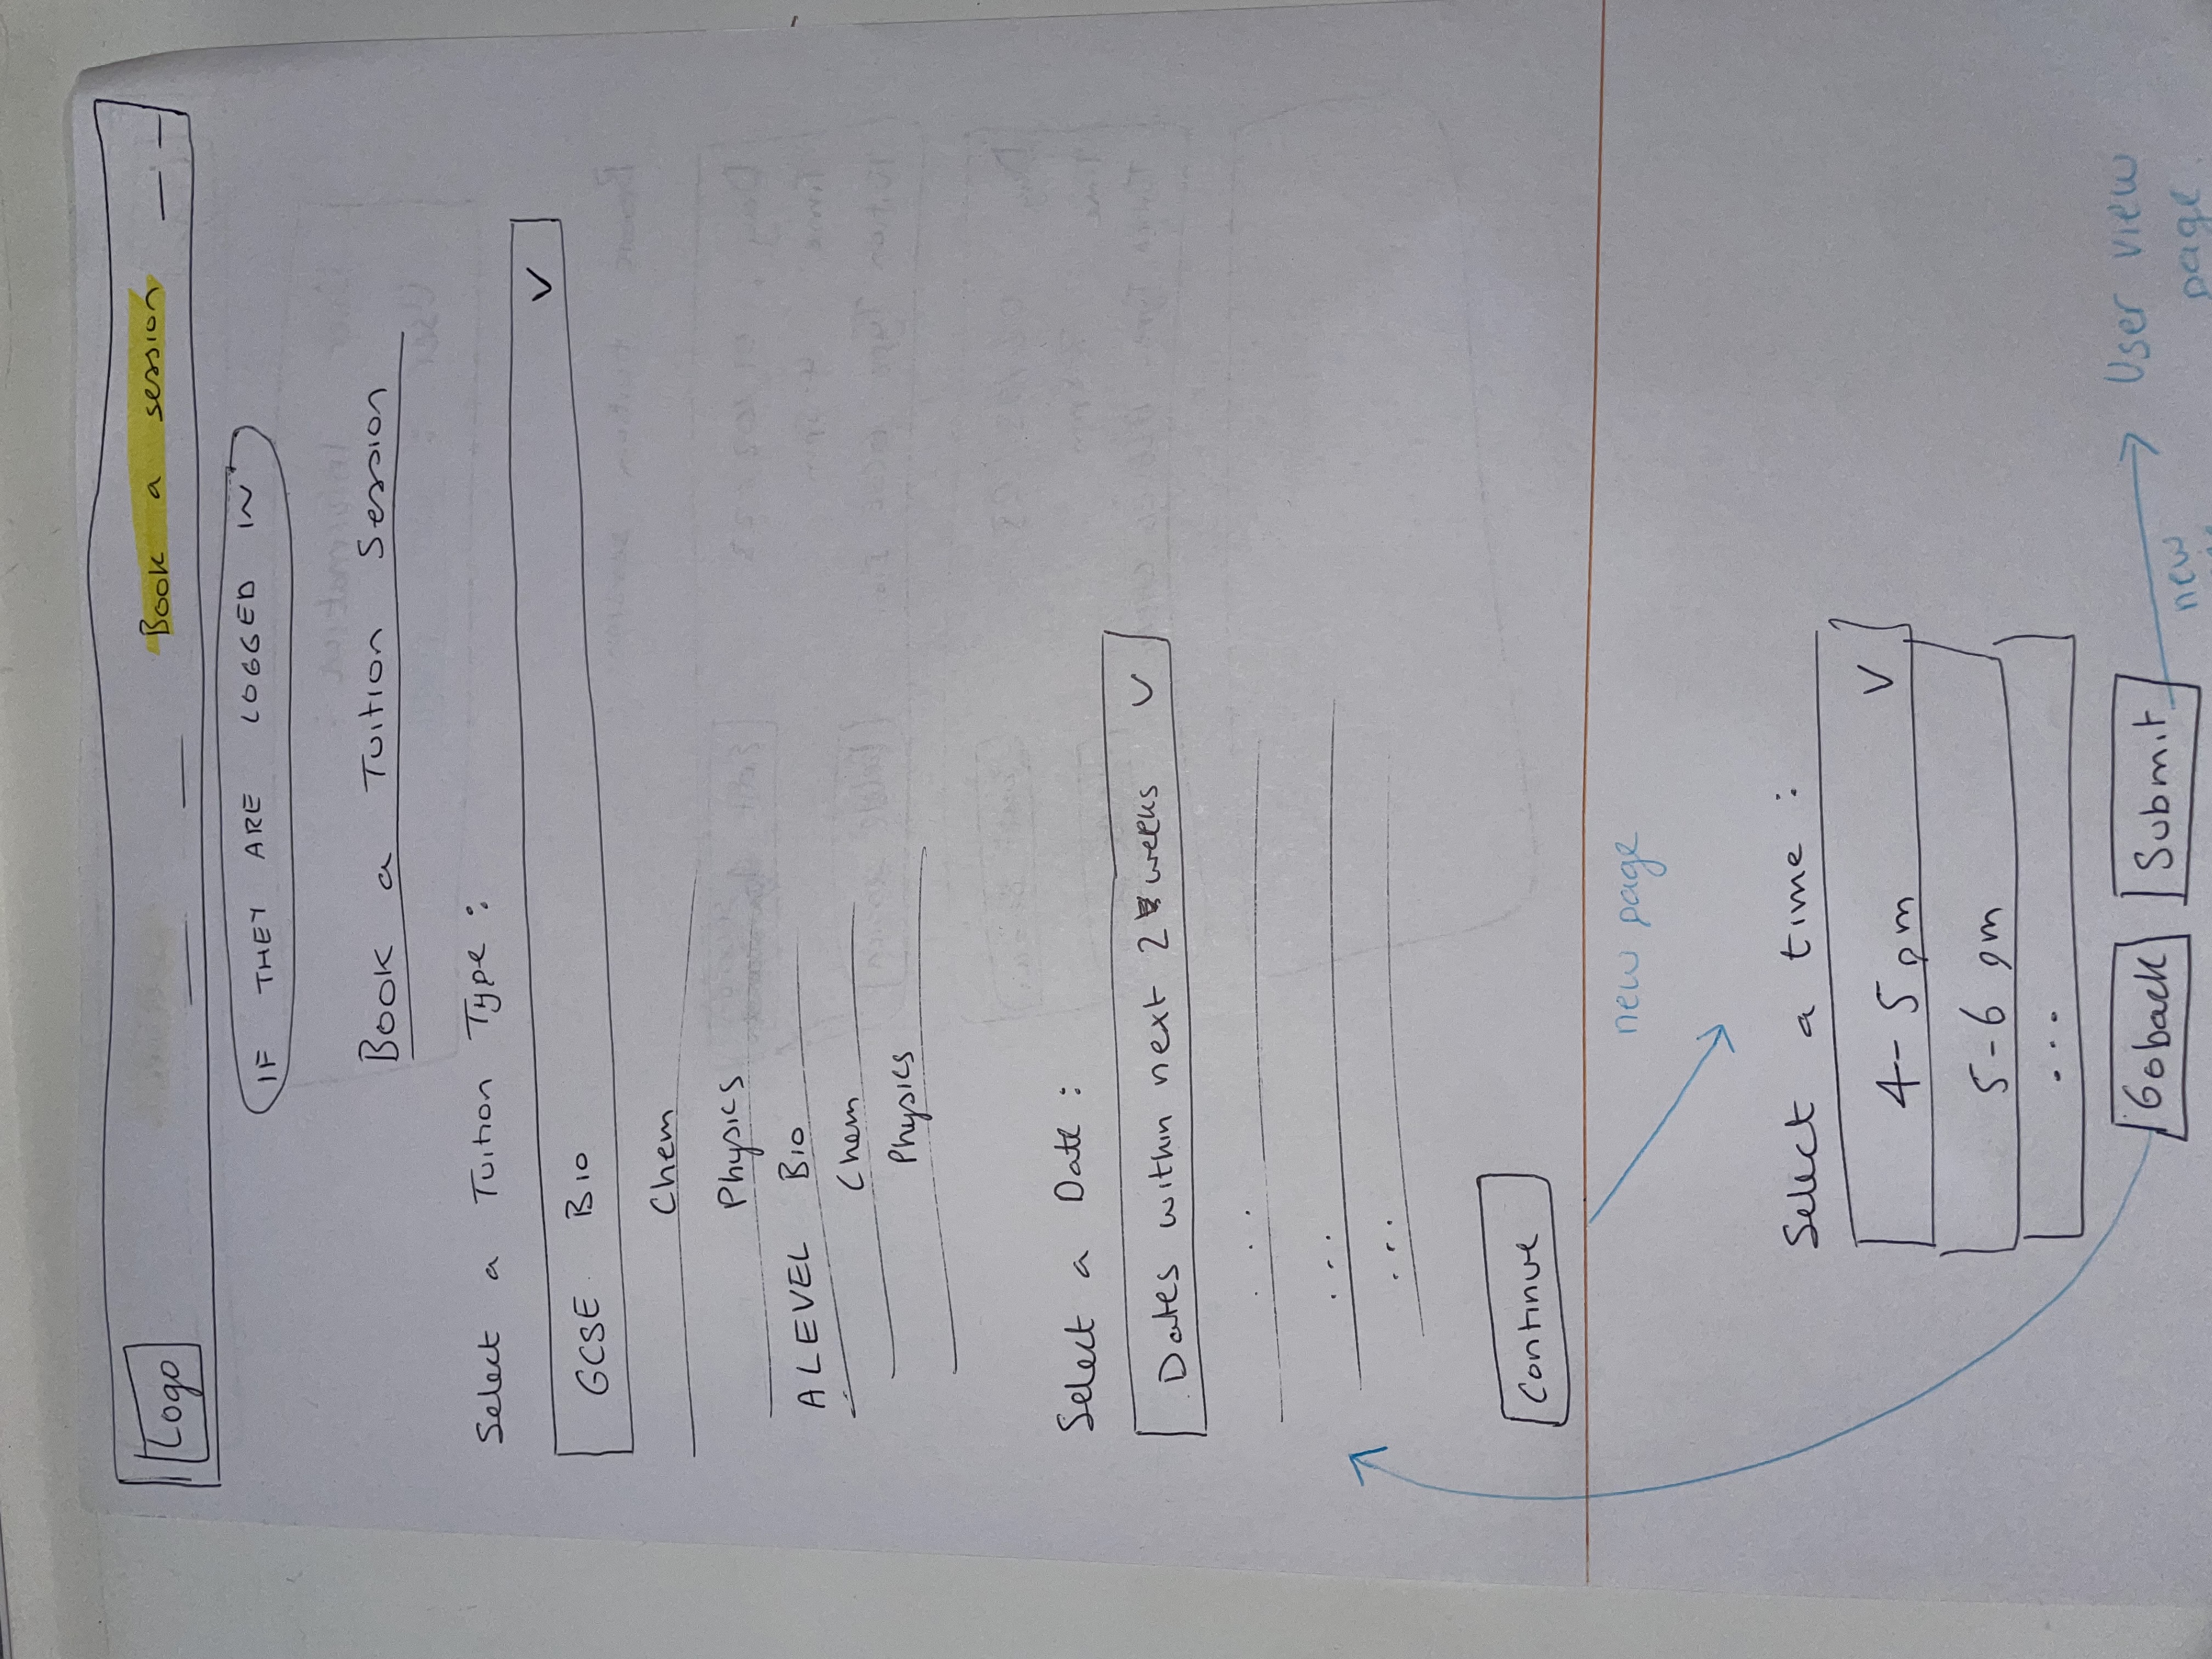 Logo
Book a session
IF THEY ARE LOGGED IN
Book a Tuition Session
Select a Tuition Type :
GCSE Bio
Chem
Physics
A LEVEL Bio
Chem
Physics
Select a Date :
Dates within next 2 weeks
...
...
...
Continue
new page
Select a time :
4-5 pm
5-6 pm
...
Go back
Submit
User view
page
new